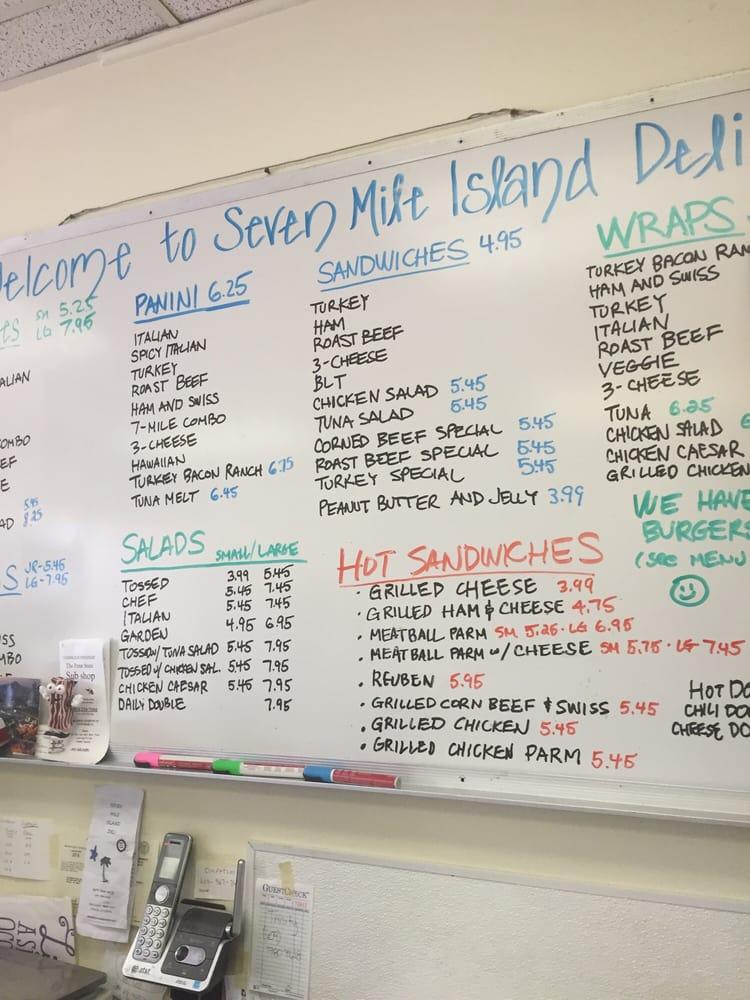 Welcome to Seven Mile Island Deli
SM 5.25
LG 7.95
ALIAN
OMBO
EF
E
5.95
AD 8.25
S JR-5.45
LG-7.95
SS
MBO
PANINI 6.25
ITALIAN
SPICY ITALIAN
TURKEY
ROAST BEEF
HAM AND SWISS
7-MILE COMBO
3-CHEESE
HAWAIIAN
TURKEY BACON RANCH 6.75
TUNA MELT 6.45
SANDWICHES 4.95
TURKEY
HAM
ROAST BEEF
3-CHEESE
BLT
CHICKEN SALAD 5.45
TUNA SALAD 5.45
CORNED BEEF SPECIAL 5.45
ROAST BEEF SPECIAL 5.45
TURKEY SPECIAL 5.45
PEANUT BUTTER AND JELLY 3.99
WRAPS
TURKEY BACON RAN
HAM AND SWISS
TURKEY
ITALIAN
ROAST BEEF
VEGGIE
3-CHEESE
TUNA 6.25
CHICKEN SALAD 6
CHICKEN CAESAR
GRILLED CHICKEN
WE HAVE
BURGERS
(SEE MENU)
SALADS SMALL/LARGE
TOSSED 3.99 5.45
CHEF 5.45 7.45
ITALIAN 5.45 7.45
GARDEN 4.95 6.95
TOSSED W/ TUNA SALAD 5.45 7.95
TOSSED W/ CHICKEN SAL. 5.45 7.95
CHICKEN CAESAR 5.45 7.95
DAILY DOUBLE 7.95
HOT SANDWICHES
• GRILLED CHEESE 3.99
• GRILLED HAM & CHEESE 4.75
• MEATBALL PARM SM 5.25 · LG 6.95
• MEATBALL PARM W/ CHEESE SM 5.75 · LG 7.45
• REUBEN 5.95
• GRILLED CORN BEEF & SWISS 5.45
• GRILLED CHICKEN 5.45
• GRILLED CHICKEN PARM 5.45
HOT DO
CHILI DO
CHEESE DO
Sub shop
SEVEN
MILE
ISLAND
DELI
at&t
GUESTCHECK